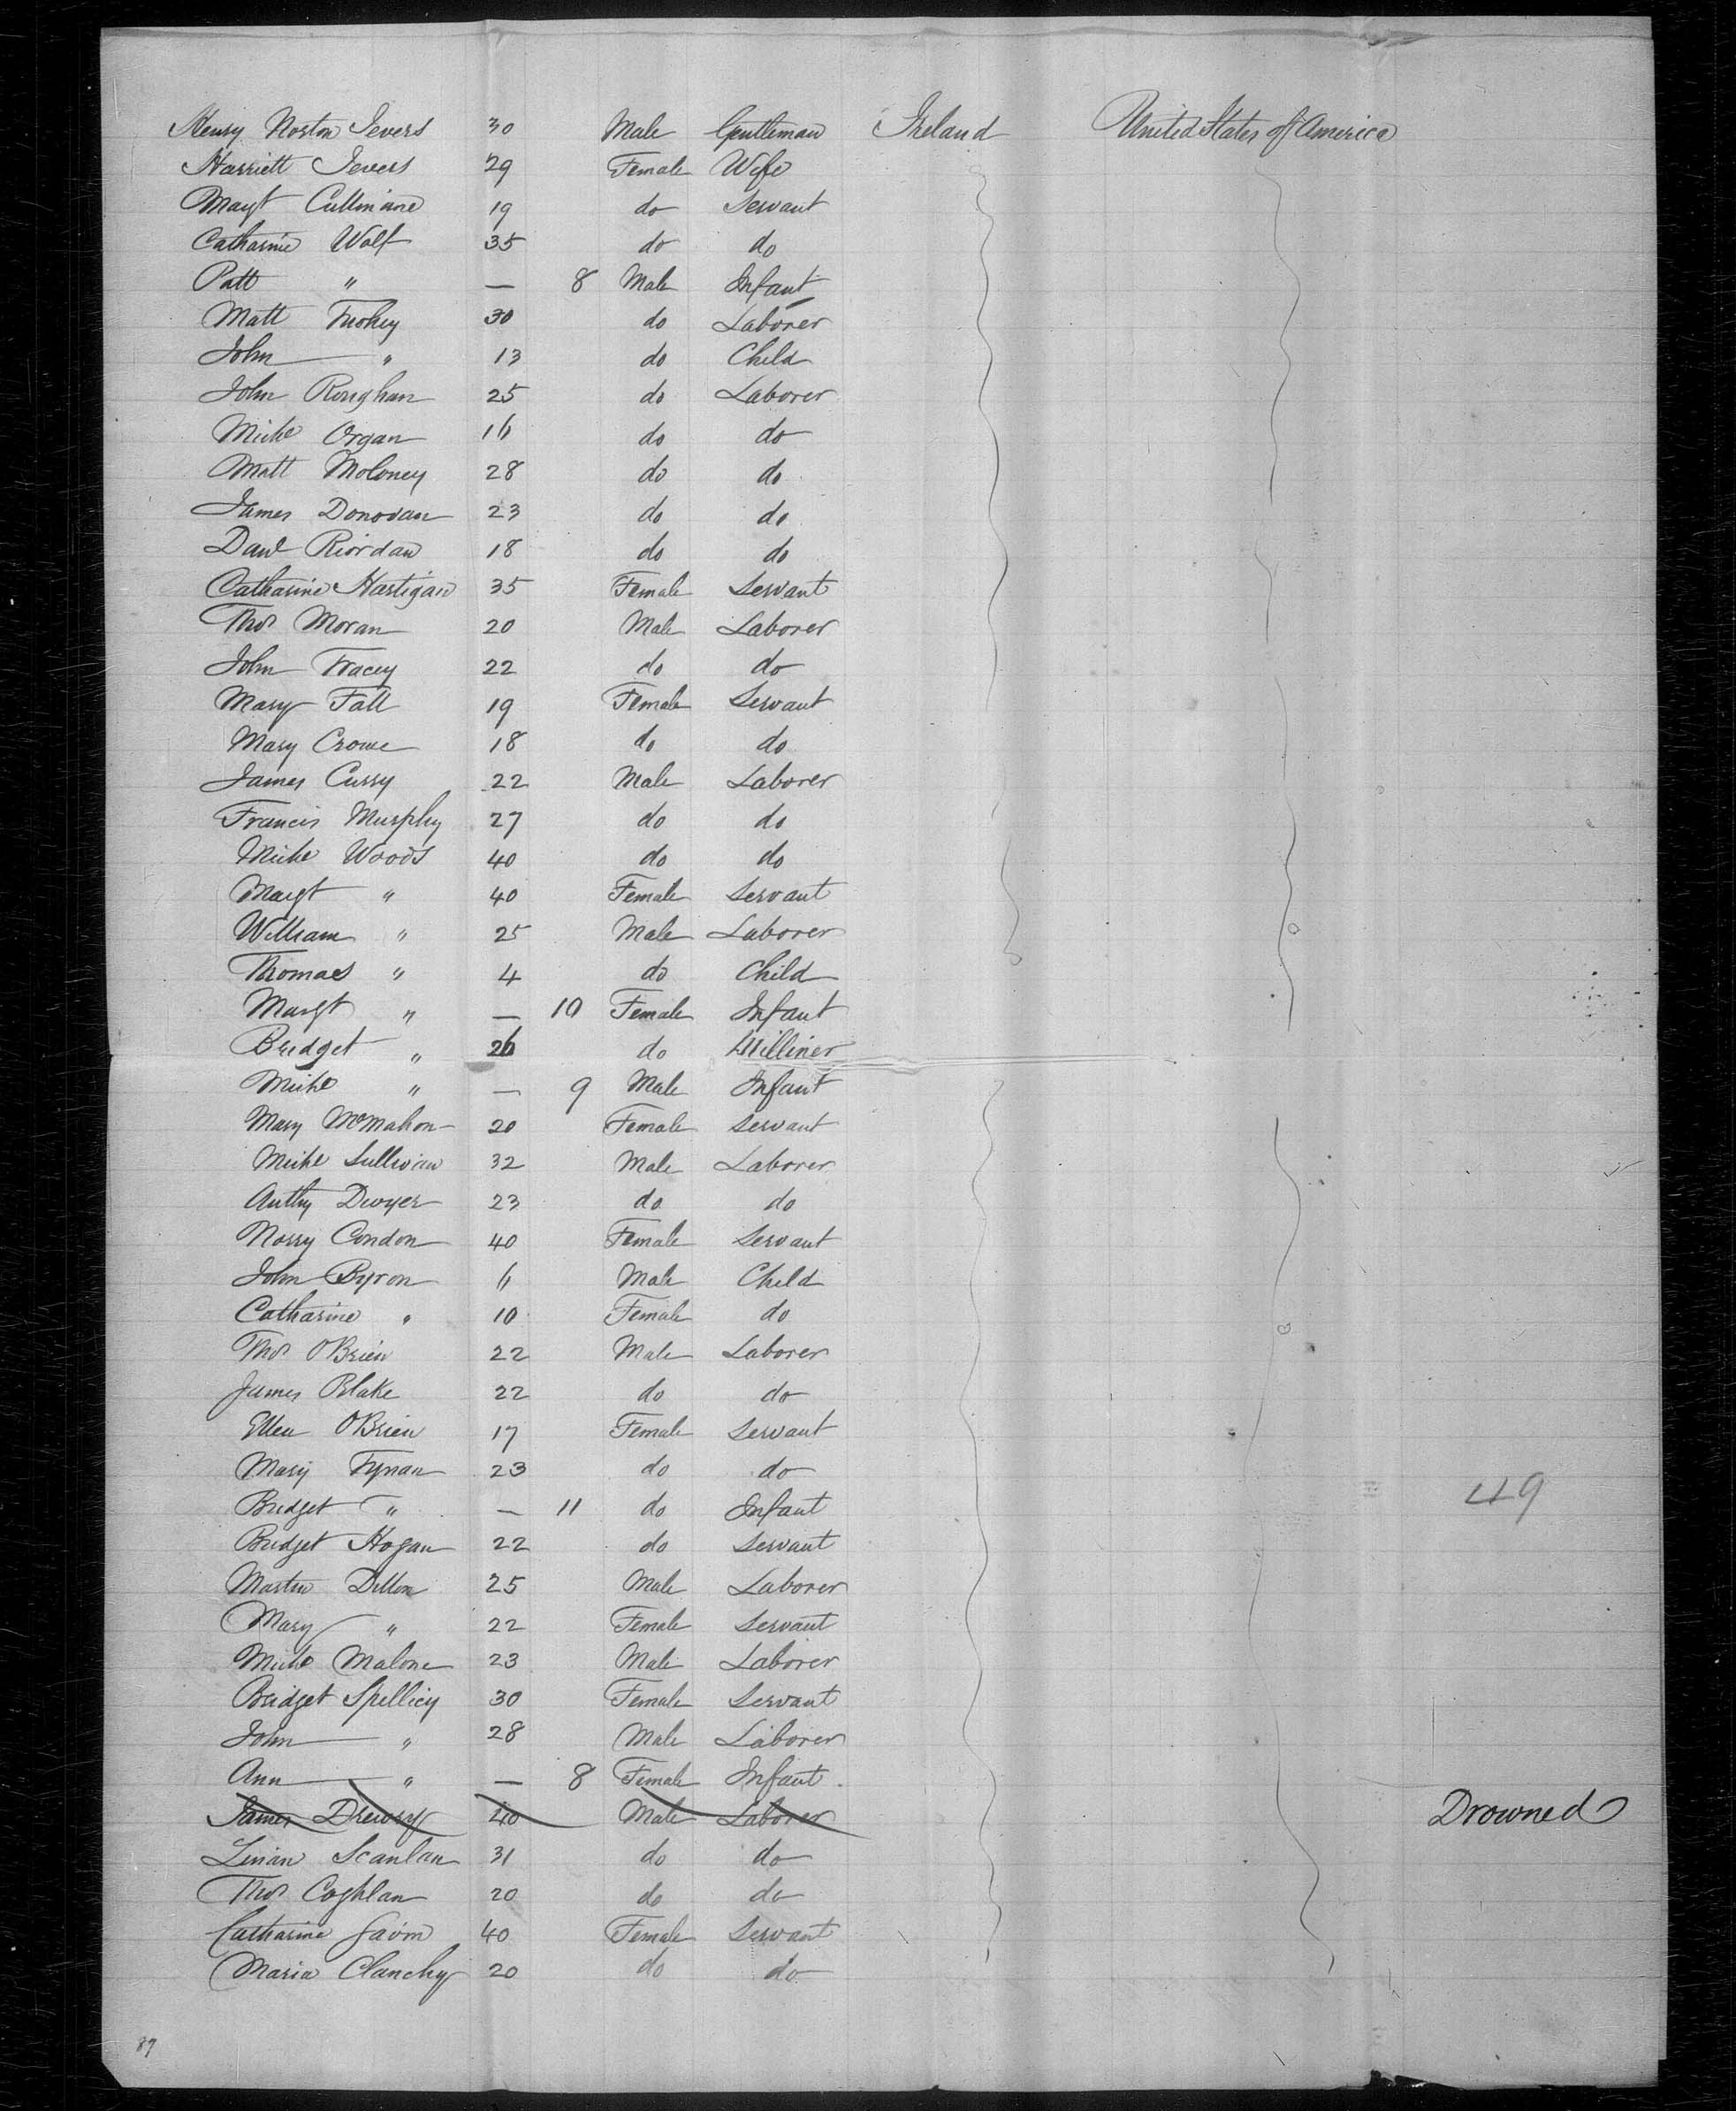 Henry Norton Ievers 30 Male Gentleman Ireland United States of America
Harriett Ievers 29 Female Wife
Margt Cullinane 19 do Servant
Catharine Wolf 35 do do
Patt " — 8 Male Infant
Matt Tuohey 30 do Laborer
John " 13 do Child
John Roughan 25 do Laborer
Michl Organ 16 do do
Matt Moloney 28 do do
James Donovan 23 do do
Danl Riordan 18 do do
Catharine Hartigan 35 Female Servant
Thos Moran 20 Male Laborer
John Tracey 22 do do
Mary Fall 19 Female Servant
Mary Crowe 18 do do
James Curry 22 Male Laborer
Francis Murphy 27 do do
Michl Woods 40 do do
Margt " 40 Female Servant
William " 25 Male Laborer
Thomas " 4 do Child
Margt " — 10 Female Infant
Bridget " 26 do Milliner
Michl " — 9 Male Infant
Mary McMahon 20 Female Servant
Michl Sullivan 32 Male Laborer
Anthy Dwyer 23 do do
Norry Condon 40 Female Servant
John Byron 6 Male Child
Catharine " 10 Female do
Thos O'Brien 22 Male Laborer
James Blake 22 do do
Ellen O'Brien 17 Female Servant
Mary Tynan 23 do do
Bridget " — 11 do Infant 49
Bridget Hogan 22 do Servant
Martin Dillon 25 Male Laborer
Mary " 22 Female Servant
Michl Malone 23 Male Laborer
Bridget Spellicy 30 Female Servant
John " 28 Male Laborer
Ann " — 8 Female Infant
James Drewry 40 Male Laborer Drowned
Scanlan 31 do do
Thos Coghlan 20 do do
Catharine Gavin 40 Female Servant
Maria Clanchy 20 do do
89